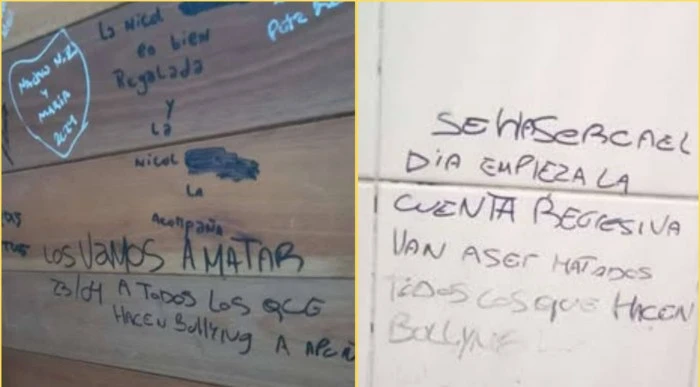 La Nicol
es bien
Regalada
y
La
Nicol
La
Acompaña
NACHO N.Z
y
MARIA
2024
LOS VAMOS A MATAR
23/04 A TODOS LOS QUE
HACEN BOLLYING A
SE HASERCA EL
DIA EMPIEZA LA
CUENTA REGRESIVA
VAN ASER MATADOS
TODOS LOS QUE HACEN
BOLLYNG